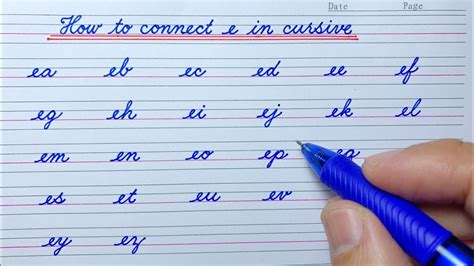 Date Page
How to connect e in cursive
ea eb ec ed ee ef
eg eh ei ej ek el
em en eo ep
es et eu ev
ey ez